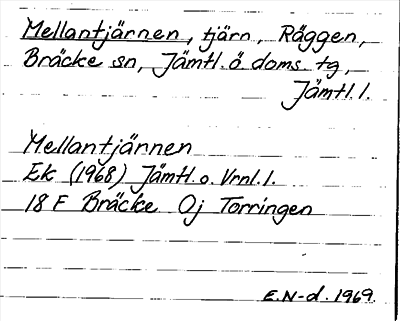 Mellantjärnen, tjärn, Räggen,
Bräcke sn, Jämtl. ö. doms. tg,
Jämtl. l.
Mellantjärnen
Ek (1968) Jämtl. o. Vrnl. l.
18 F Bräcke Oj Torringen
E.N-d. 1969.